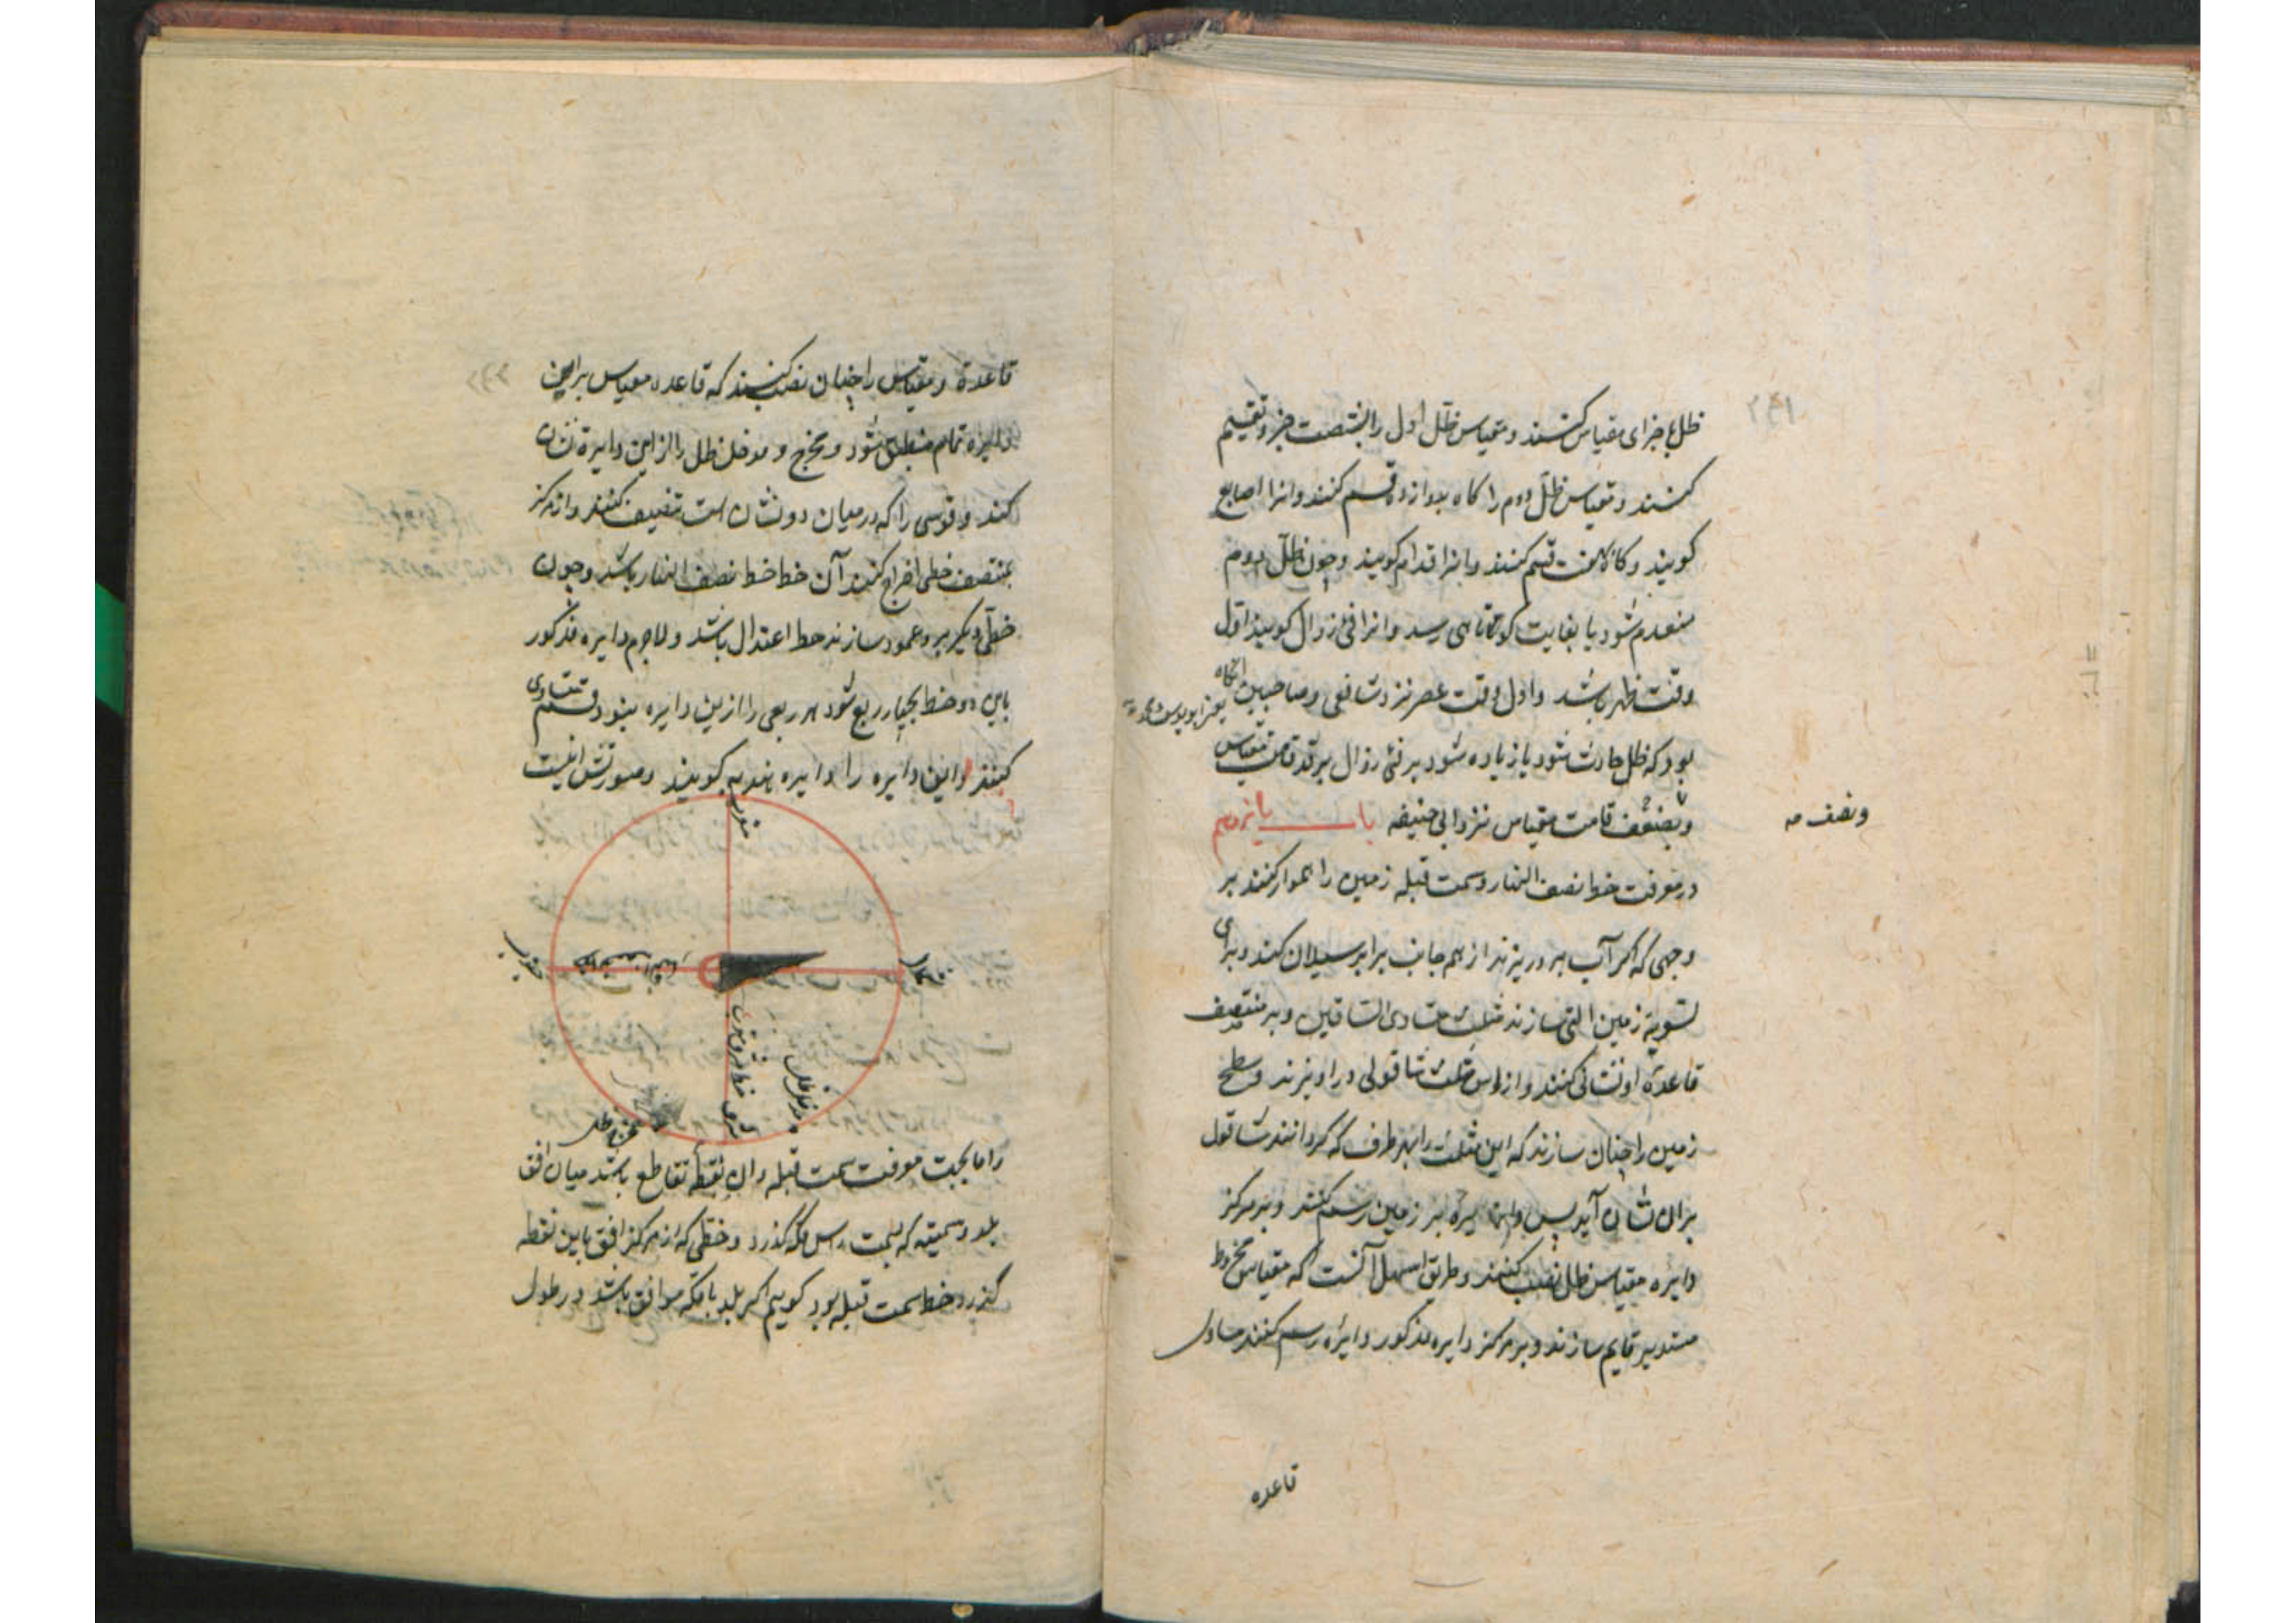 ظل باجزای مقیاس کنند و مقیاس ظل اول را بشصت جزو تقسیم
کنند و مقیاس ظل دوم را گاه بدوازده قسم کنند و انرا اصابع
کویند و کاه بهفت قسم کنند و انرا اقدام کویند و چون ظل دوم
منعدم شود یا بغایت کوتاهی رسد و انرا فئ زوال کویند اول
وقت ظهر باشد و اول وقت عصر نزد شافعی و صاحبین انگاه
یعنی ابو یوسف و محمد
بود که ظل حادث شود یا زیاده شود بر فئ زوال بر قدر قامت مقیاس
و بضعف قامت مقیاس نزد ابی حنیفه باب یازدهم
و نصف صه
در معرفت خط نصف النهار و سمت قبله زمین را هموار کنند بر
وجهی که اکر آب برو ریزند از همه جانب برابر سیلان کند و برای
تسویه زمین التی سازند مثلث متساوی الساقین و بر منتصف
قاعدهٔ او نشانی کنند و از راس مثلث شاقولی در آویزند و سطح
زمین را چنان سازند که این مثلث را بهر طرف که کردانند شاقول
بران نشان آید پس دایرهٔ بر زمین رسم کنند و بر مرکز
دایره مقیاس ظل نصب کنند و طریق اسهل آنست که مقیاس مخروط
مستدیر قایم سازند و بر مرکز دایره مذکور دایره رسم کنند مساوی
قاعده
قاعدهٔ و مقیاس را چنان نصب کنند که قاعده مقیاس براین
دایره تمام منطبق شود و مخرج و مدخل ظل را ازین دایره نشان
کنند و قوسی را که در میان دو نشان است تنصیف کنند و از مرکز
بمنتصف خطی اخراج کنند آن خط خط نصف النهار باشد و چون
خطی دیکر برو عمود سازند خط اعتدال باشد و لاجرم دایره مذکور
باین دو خط بچهار ربع شود هر ربعی را ازین دایره بنود قسم متساوی
کنند و این دایره را دایره هندیه کویند و صورتش اینست
مغرب
جنوب
خط نصف النهار
شمال
خط مشرق و مغرب
مشرق
مدخل ظل
مخرج ظل
و اما بجهت معرفت سمت قبله و آن نقطه تقاطع باشد میان افق
بلد و سمتیه که بسمت راس مکه کذرد و خطی که از مرکز افق باین نقطه
کذرد خط سمت قبله بود کوییم اکر بلد با مکه موافق باشد در طول